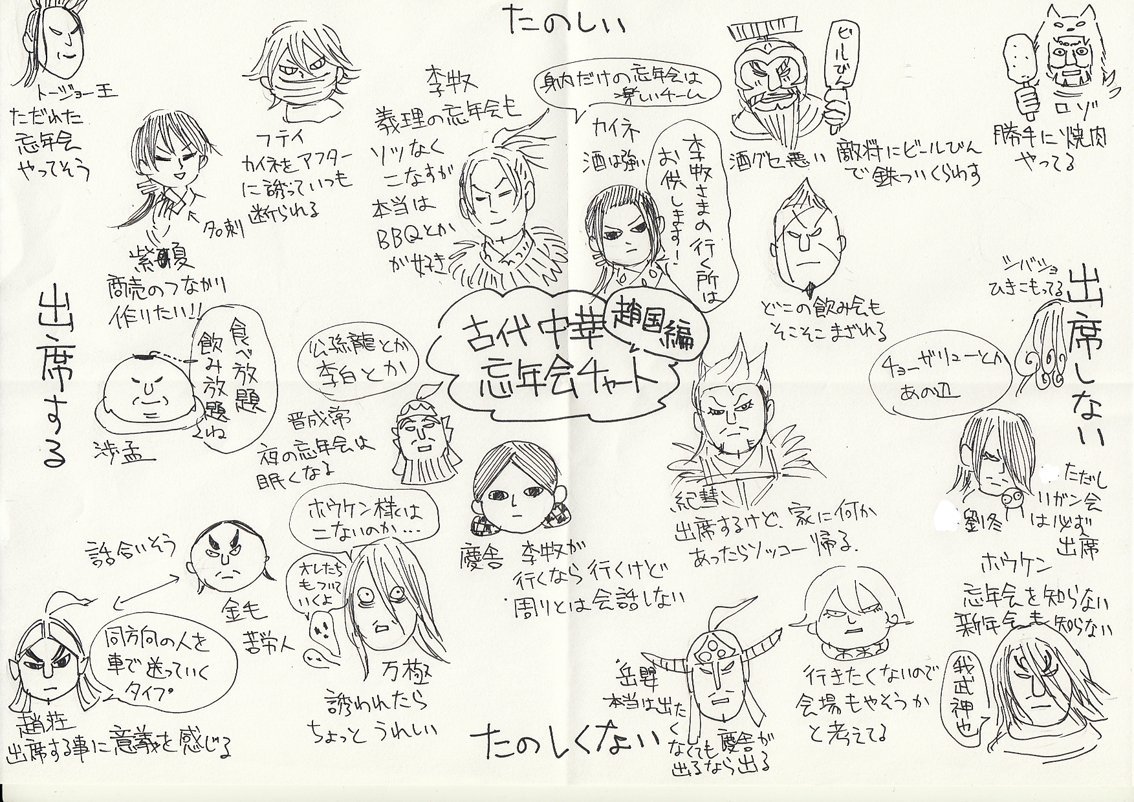 たのしい
トージョー王
ただれた
忘年会
やってそう
フテイ
カイネをアフター
に誘っていつも
断られる
李牧
義理の忘年会も
ソツなく
こなすが
本当は
BBQとか
が好き
身内だけの忘年会は
楽しいチーム
カイネ
酒は強い
李牧さまの行く所は
お供します!
ビールびん
酒グセ悪い
敵将にビールびん
で鉄ついくらわす
ロゾ
勝手に焼肉
やってる
名刺
紫夏
商売のつながり
作りたい!!
どこの飲み会も
そこそこまざれる
シバショ
ひきこもってる
出席する
出席しない
古代中華
趙国編
忘年会チャート
食べ放題
飲み放題
ね
渉孟
公孫龍とか
李白とか
晋成常
夜の忘年会は
眠くなる
チョーザリューとか
あの辺
紀彗
出席するけど、家に何か
あったらソッコー帰る。
劉冬
ただし
リガン会
は必ず
出席
慶舎
李牧が
行くなら行くけど
周りとは会話しない
ホウケン様は
こないのか…
オレたち
もついて
いくよ
万極
誘われたら
ちょっとうれしい
話合いそう
金毛
苦労人
同方向の人を
車で送っていく
タイプ
趙荘
出席する事に意義を感じる
たのしくない
岳嬰
本当は出た
くなくても慶舎が
出るなら出る
行きたくないので
会場もやそうか
と考えてる
ホウケン
忘年会を知らない
新年会も知らない
我武神也